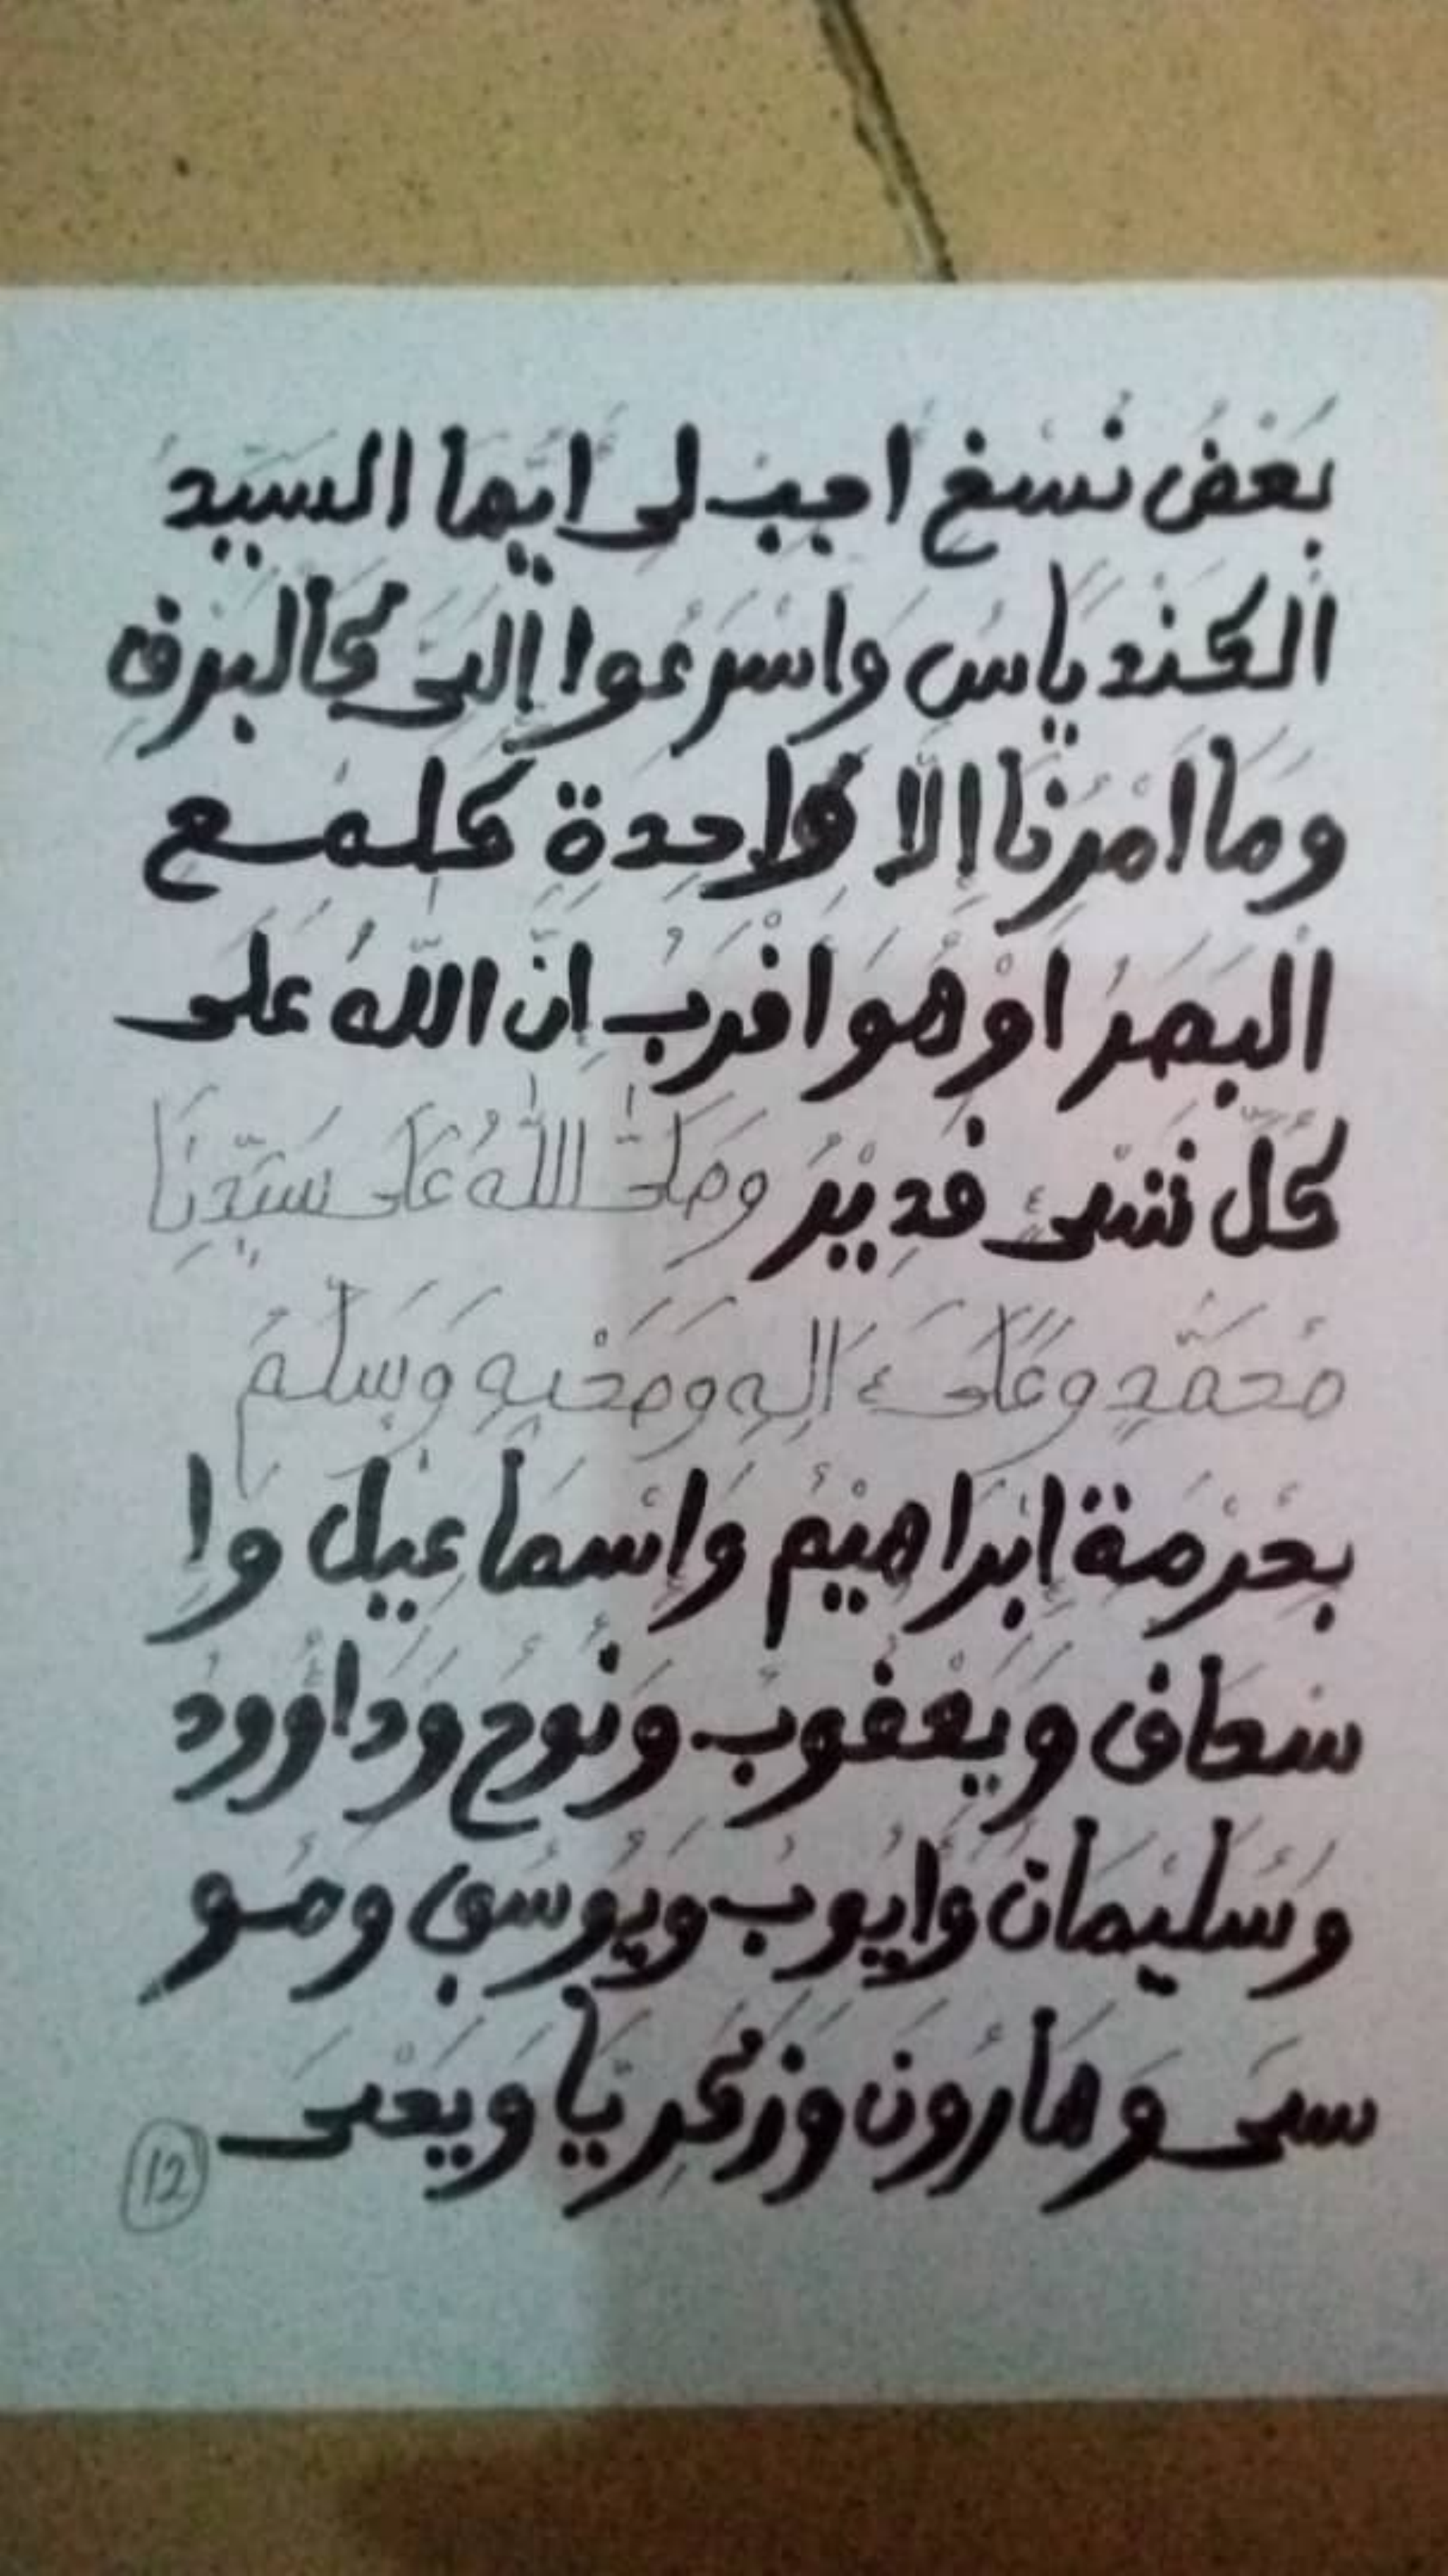 بَعْضُ نُسَخ اجب لى ايّها السيّد
الكندياس واسْرعوا إلىّ كالبرق
وما امْرنا إلّا واحدة كلمح
البصر اوْ هو اقْربُ إنّ اللّهُ على
كلّ شىء قدير وصلّى اللّهُ على سيّدنا
محمّد وعلىء اله وصحْبه وسلم
بحرْمة إبراهيْمُ وإسْماعيل وإ
سحاق ويعْقوب ونوح وداوود
وسليمان وايوب ويوسف ومو
سى وهارون وزكريّا ويحْى
12